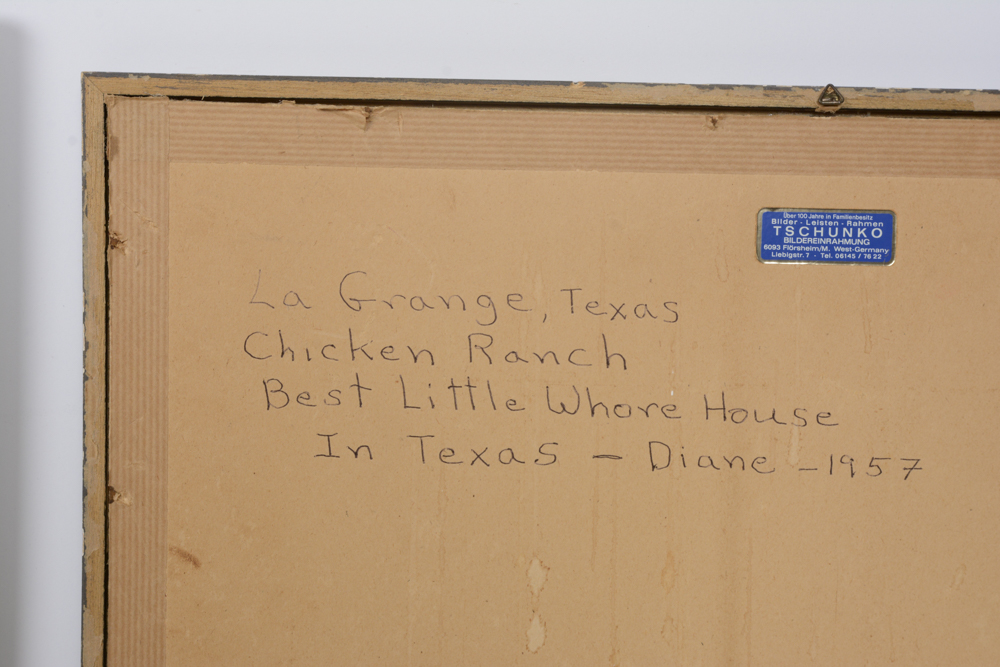 Über 100 Jahre in Familienbesitz
Bilder - Leisten - Rahmen
TSCHUNKO
BILDEREINRAHMUNG
6093 Flörsheim/M. West-Germany
Liebigstr. 7 · Tel. 06145 / 76 22
La Grange, Texas
Chicken Ranch
Best Little Whore House
In Texas - Diane - 1957